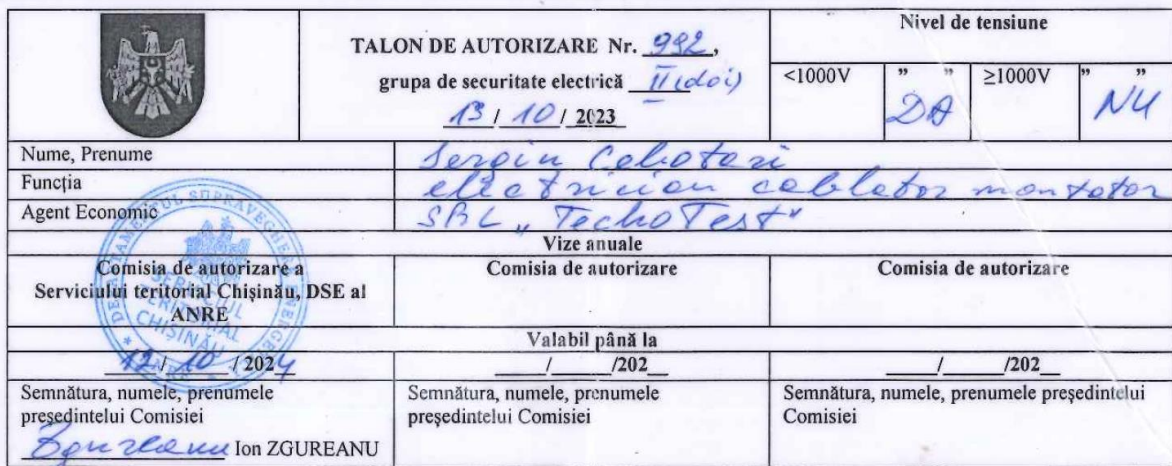 TALON DE AUTORIZARE Nr. 992,
grupa de securitate electrică II (doi)
13 / 10 / 2023
Nivel de tensiune
<1000V " DA " ≥1000V " NU "
Nume, Prenume Sergiu Cebotari
Funcția electrician cablator montator
Agent Economic SRL „TechoTest"
Vize anuale
Comisia de autorizare a
Serviciului teritorial Chișinău, DSE al
ANRE
Comisia de autorizare
Comisia de autorizare
Valabil până la
12 / 10 / 2024
/ /202
/ /202
Semnătura, numele, prenumele
președintelui Comisiei
Zgureanu Ion ZGUREANU
Semnătura, numele, prenumele
președintelui Comisiei
Semnătura, numele, prenumele președintelui
Comisiei
SERVICIUL
TERITORIAL
CHIȘINĂU